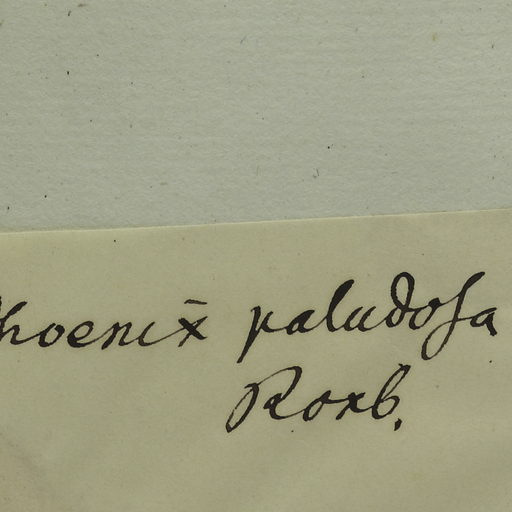 Phoenix paludosa
Roxb.